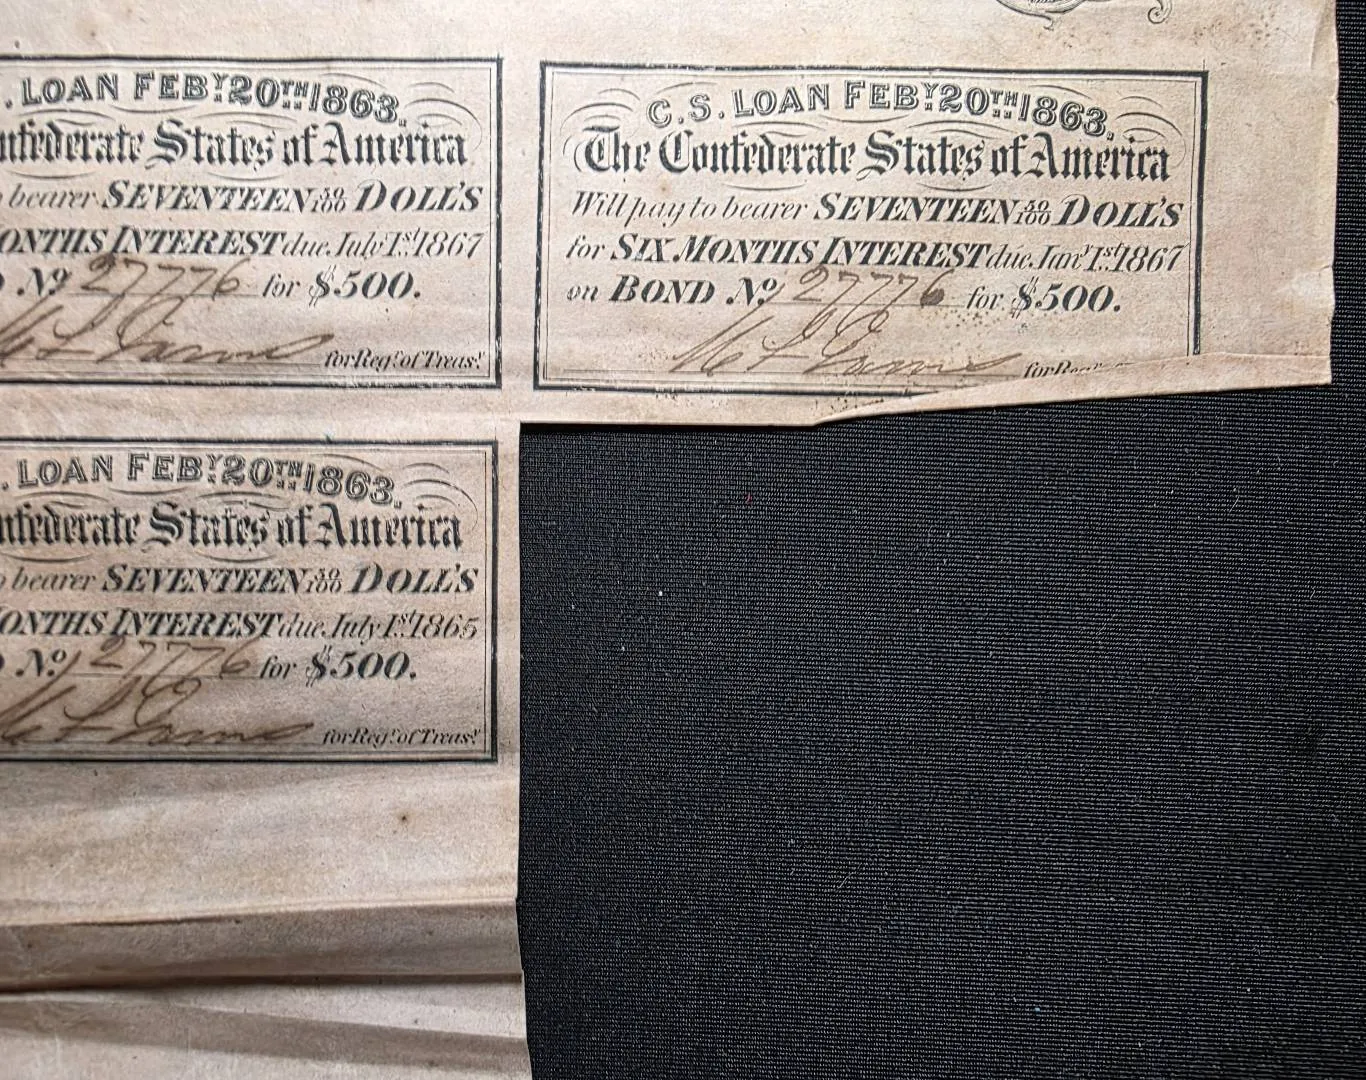 . LOAN FEBY. 20TH. 1863.
nfederate States of America
bearer SEVENTEEN 50/100 DOLL'S
ONTHS INTEREST due July 1st. 1867
No. 27776 for $500.
for Regr. of Treasy.
C.S. LOAN FEBY. 20TH. 1863.
The Confederate States of America
Will pay to bearer SEVENTEEN 50/100 DOLL'S
for SIX MONTHS INTEREST due Jany 1st. 1867
on BOND No. 27776 for $500.
for Reg
. LOAN FEBY. 20TH. 1863.
nfederate States of America
bearer SEVENTEEN 50/100 DOLL'S
ONTHS INTEREST due July 1st. 1865
No. 27776 for $500.
for Regr. of Treasy.